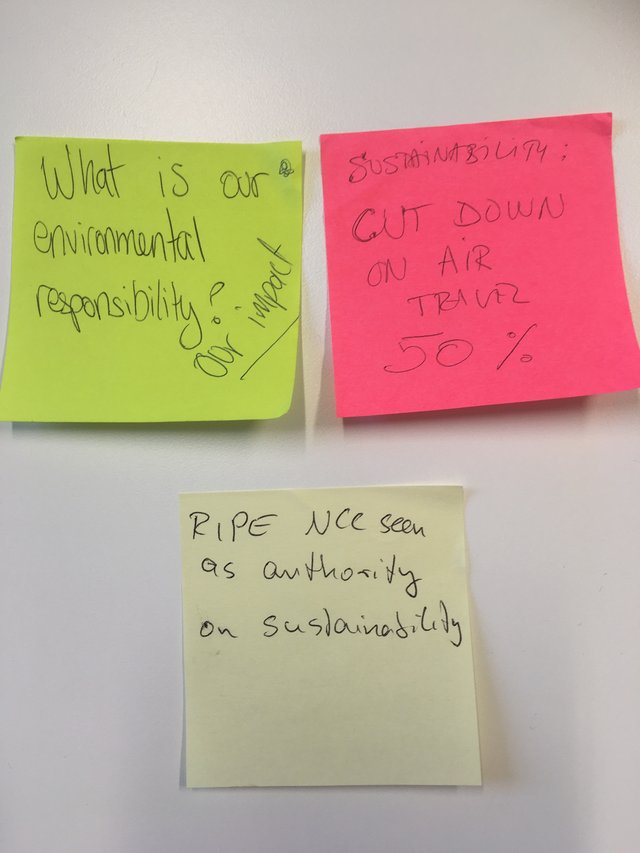 What is our
environmental
responsibility?
our impact
SUSTAINABILITY:
CUT DOWN
ON AIR
TRAVEL
50%
RIPE NCC seen
as authority
on sustainability